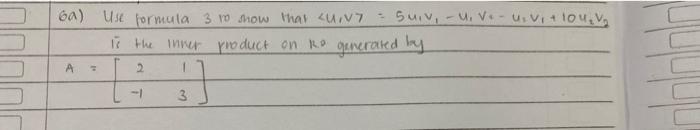 6a) Use formula 3 to show that <u,v> = 5u₁v₁ - u₁v₂ - u₂v₁ + 10u₂v₂
is the inner product on R² generated by
A = [ 2 1
-1 3 ]